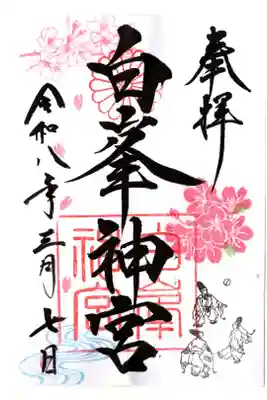 奉拝
白峯神宮
令和八年三月七日
白峯
神宮